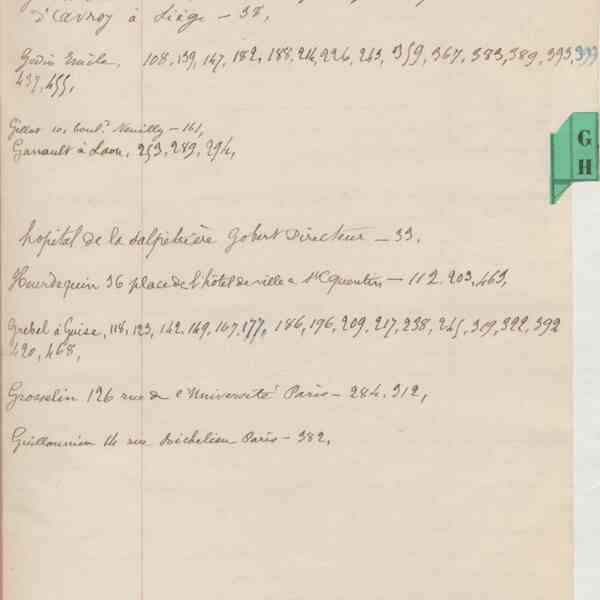 d'Avroy à Liège — 38,
Godin Emile, 108, 139, 147, 182, 188, 214, 226, 243, 359, 367, 383, 389, 393, 399
437, 455,
Gillot 10, boul.d Neuilly — 161,
Garrault à Laon, 253, 289, 294,
G
H
hopital de la Salpétrière Gobert Directeur — 33,
Hourdequin 36 place de l'hôtel de ville à St Quentin — 112, 203, 463,
Grebel à Guise, 118, 123, 142, 149, 167, 177, 186, 196, 209, 217, 238, 245, 309, 322, 392
420, 468,
Grosselin 126 rue de l'Université Paris — 284, 312,
Guillaumin 14 rue Richelieu Paris — 382,